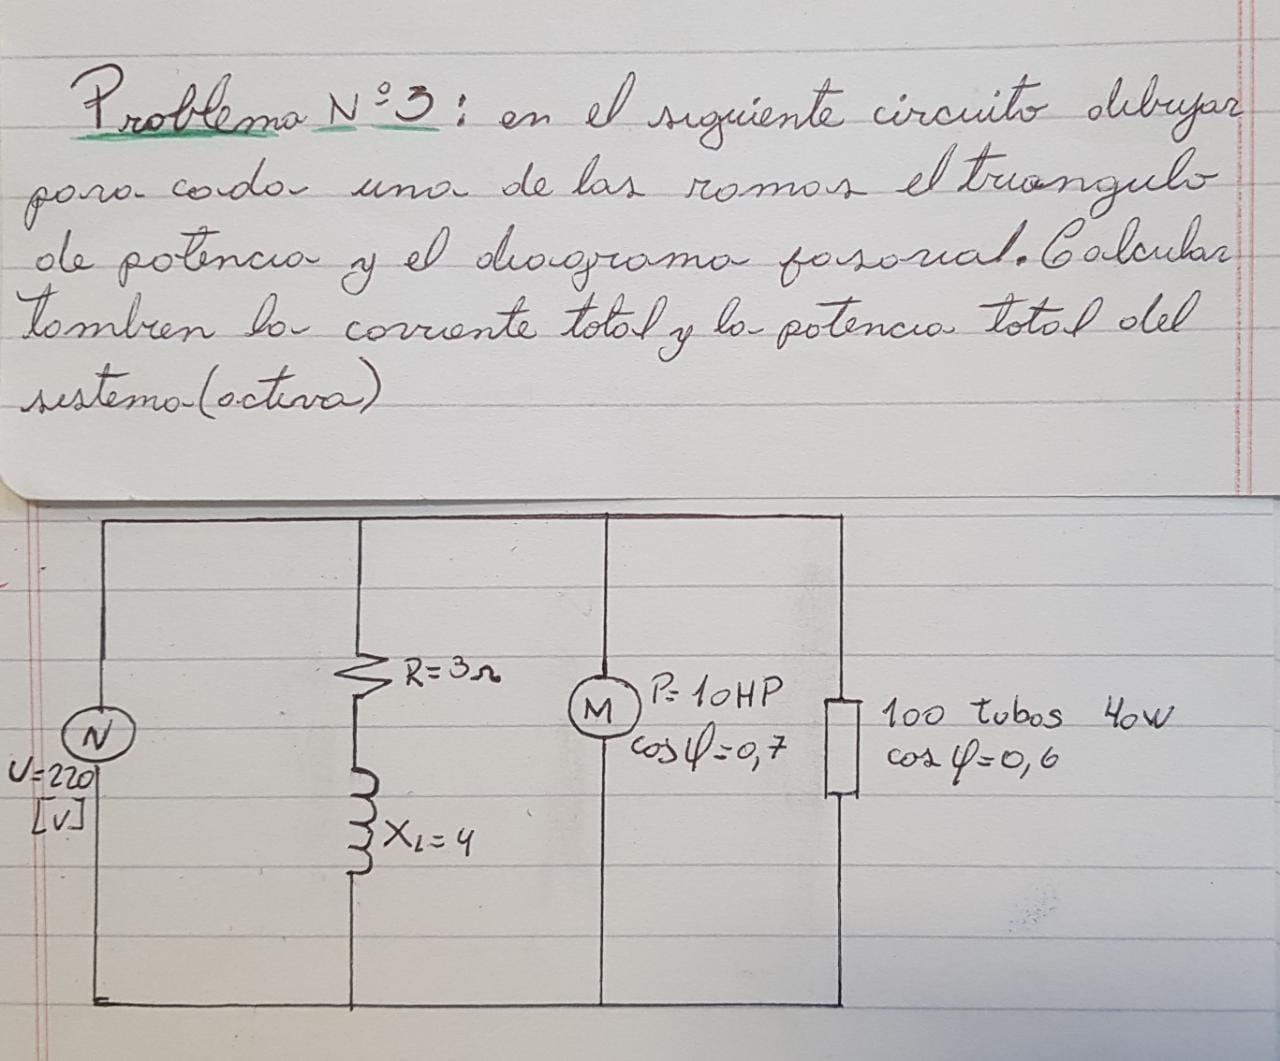 Problema Nº3: en el siguiente circuito dibujar
para cada una de las ramas el triangulo
de potencia y el diagrama fasorial. Calcular
tambien la corriente total y la potencia total del
sistema (activa)
R=3Ω
P=10HP
cos φ=0,7
100 tubos 40W
cos φ=0,6
N
M
U=220
[V]
XL=4